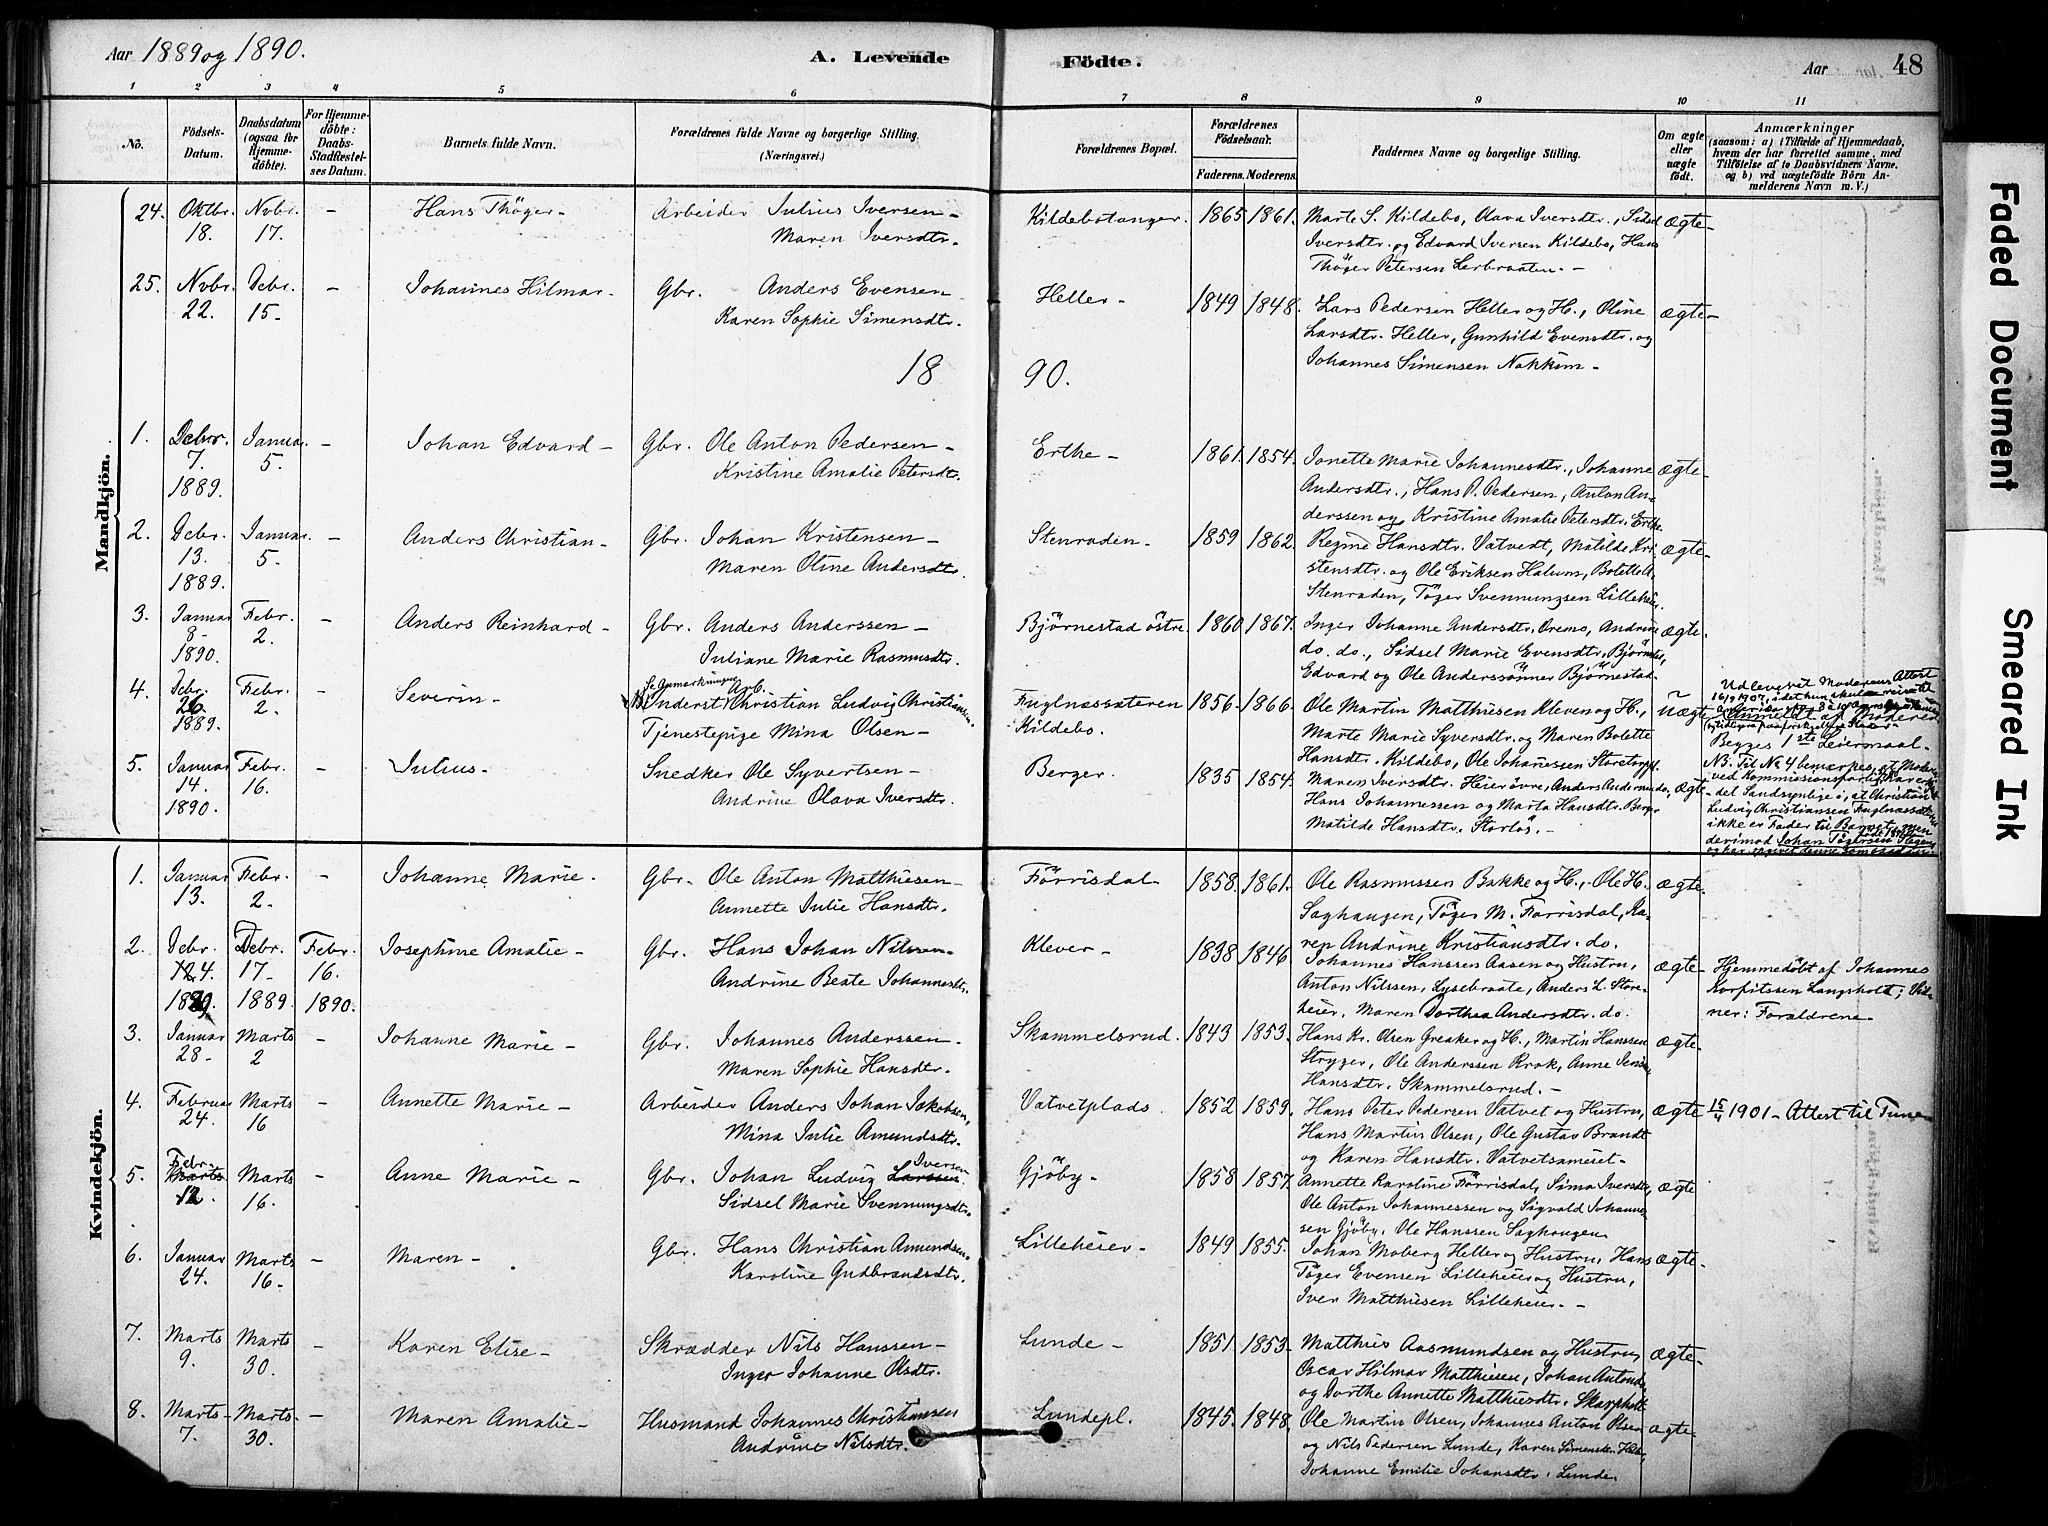 Aar 1889 og 1890.
A. Levende Födte.
Aar 48
1 2 3 4 5 6 7 8 9 10 11
No.
Födsels-Datum.
Daabsdatum (ogsaa for Hjemme-döbte).
For Hjemme-döbte: Daabs-Stadfæstel-ses Datum.
Barnets fulde Navn.
Forældrenes fulde Navne og borgerlige Stilling.
(Næringsvei.)
Forældrenes Bopæl.
Forældrenes Födselsaar.
Faderens. Moderens.
Faddernes Navne og borgerlige Stilling.
Om ægte eller uægte födt.
Anmærkninger
(saasom: a) i Tilfælde af Hjemmedaab,
hvem der har forrettet samme, med
Tilföielse af to Daabsvidners Navne.
og b) ved uægtefödte Börn An-
melderens Navn m. V.)
Mandkjön.
24. Oktbr. Novbr. - Hans Thöger - Arbeider Julius Iversen - Kildebotangen. 1865 1861. Marte S. Kildebo, Olava Iversdtr., Sidsel ægte -
18. 17. Maren Iversdtr. Iversdtr. og Edvard Iversen Kildebo, Hans
Thöger Petersen Lerbraaten. -
25. Novbr. Debr. - Johannes Hilmar - Gbr. Anders Evensen - Heller - 1849 1848. Lars Pedersen Heller og H., Oline ægte -
22. 15. Karen Sophie Simensdtr. Larsdtr. Heller, Gunhild Evensdtr. og
Johannes Simensen Nakkim -
18 90.
1. Debr. Januar - Johan Edvard - Gbr. Ole Anton Pedersen - Erthe - 1861. 1854. Jonette Marie Johannesdtr., Johanne ægte -
7. 5. Kristine Amalie Petersdtr. Andersdtr., Hans P. Pedersen, Anton An-
1889. derssen og Kristine Amalie Petersdtr. Erthe.
2. Debr. Januar - Anders Christian - Gbr. Johan Kristensen - Stenraden - 1859 1862. Regine Hansdtr. Vatvedt, Matilde Kri- ægte -
13. 5 Maren Oline Andersdtr. stensdtr. og Ole Eriksen Halum, Bolette A.
1889. Stenraden, Töger Svennungsen Lilleheier.
3. Januar Febr. - Anders Reinhard - Gbr. Anders Anderssen - Björnestad östre. 1860 1867. Inger Johanne Andersdtr. Oremo, Andrine ægte -
8 - 2. Juliane Marie Rasmusdtr. do. do., Sidsel Marie Evensdtr. Björnestad,
1890. Edvard og Ole Anderssönner Björnestad.
4. Debr. Febr. - Severin - Se Anmærkningen Arb.
26 2. NB. Inderst Christian Ludvig Christiansen. Fuglnessæteren 1856 - 1866. Ole Martin Matthisen Kleven og H., Uægte
1889. Tjenestepige Mina Olsen - Kildebo. Marte Marie Syversdtr. og Maren Bolette
Hansdtr. Kildebo, Ole Johannessen Storetorp.
Udleveret Moderens Attest
Anmeldt af Moderen
Begges 1ste Leiermaal.
NB. Til No 4 bemærkes, at Moderen
ved Kommissionsforlig
det Sandsynlige i, at Christian
Ludvig Christiansen Fuglnessæteren
ikke er Fader til Barnet, men
derimod Johan Tögersen
5. Januar Febr. - Julius - Snedker Ole Syvertsen - Berger. 1835 1854. Maren Iversdtr. Heier övre, Anders Andersen do, ægte -
14. 16. Andrine Olava Iversdtr. Hans Johannessen og Marta Hansdtr. Berger
1890. Matilde Hansdtr. Storlös. -
Kvindekjön.
1. Januar Febr. - Johanne Marie - Gbr. Ole Anton Matthiesen - Förrisdal - 1858. 1861. Ole Rasmussen Bakke og H., Ole H. ægte -
13. 2. Annette Julie Hansdtr. Saghaugen, Töger M. Förrisdal, Ka-
ren Andrine Kristiansdtr. do.
2. Debr. Debr. Febr. Josephine Amalie - Gbr. Hans Johan Nilsen - Klever - 1838 1846. Johannes Hanssen Aasen og Hustru, ægte - Hjemmedöbt af Johannes
4. 17 - 16. Andrine Beate Johannesdtr. Anton Nilssen, Lysebraate, Anders L. Store- Korfitssen Langsholt; Vid-
1889. 1889 1890. heier, Maren Dorthea Andersdtr. do. ner: Forældrene
3. Januar Marts - Johanne Marie - Gbr. Johannes Anderssen - Skammelsrud. 1843 1853. Hans Kr. Olsen Greaker og H., Martin Hanssen ægte -
28 - 2 Maren Sophie Hansdtr. Stryger, Ole Anderssen Krok, Anne Jensa
Hansdtr. Skammelsrud. -
4. Februar Marts - Annette Marie - Arbeider Anders Johan Jakobsen, Vatvetplads. 1852. 1859. Hans Peter Pedersen Vatvet og Hustru, ægte 15/4 1901 - Attest til Tune
24. 16 Mina Julie Amundsdtr. Hans Martin Olsen, Ole Gustav Brandt
og Karen Hansdtr. Vatvetsameiet -
5. Febr. Marts - Anne Marie - Gbr. Johan Ludvig Larssen Iversen Gjöby - 1858 1857. Annette Karoline Förrisdal, Sima Iversdtr., ægte
Marts 12. 16. Sidsel Marie Svennungsdtr. Ole Anton Johannessen og Sigvald Johannes-
sen Gjöby, Ole Hanssen Saghaugen
6. Januar Marts - Maren - Gbr. Hans Christian Amundsen. Lilleheier - 1849 1855. Johan Moberg Heller og Hustru, Hans ægte -
24. 16 - Karoline Gudbrandsdtr. Töger Evensen Lilleheier og Hustru,
Iver Matthiesen Lilleheier. -
7. Marts Marts - Karen Elise - Skrædder Nils Hanssen - Lunde - 1851. 1853. Matthis Aasmundsen og Hustru, ægte -
9. 30. Inger Johanne Olsdtr. Oscar Hilmar Matthiesen, Johan Antonsen
og Dorthe Annette Matthisdtr. Skarpholt
8. Marts - Marts - - Maren Amalie - Husmand Johannes Christiansen Lundepl. 1845. 1848. Ole Martin Olsen, Johannes Anton Olsen ægte -
7. 30. Andrine Nilsdtr. og Nils Pedersen Lunde, Karen Simensdtr.
Johanne Emilie Johansdtr. Lunde.
Faded Document
Smeared Ink